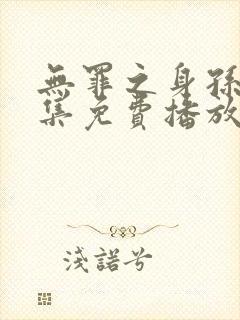 無罪之身孫
集免費播放
淺諾兮